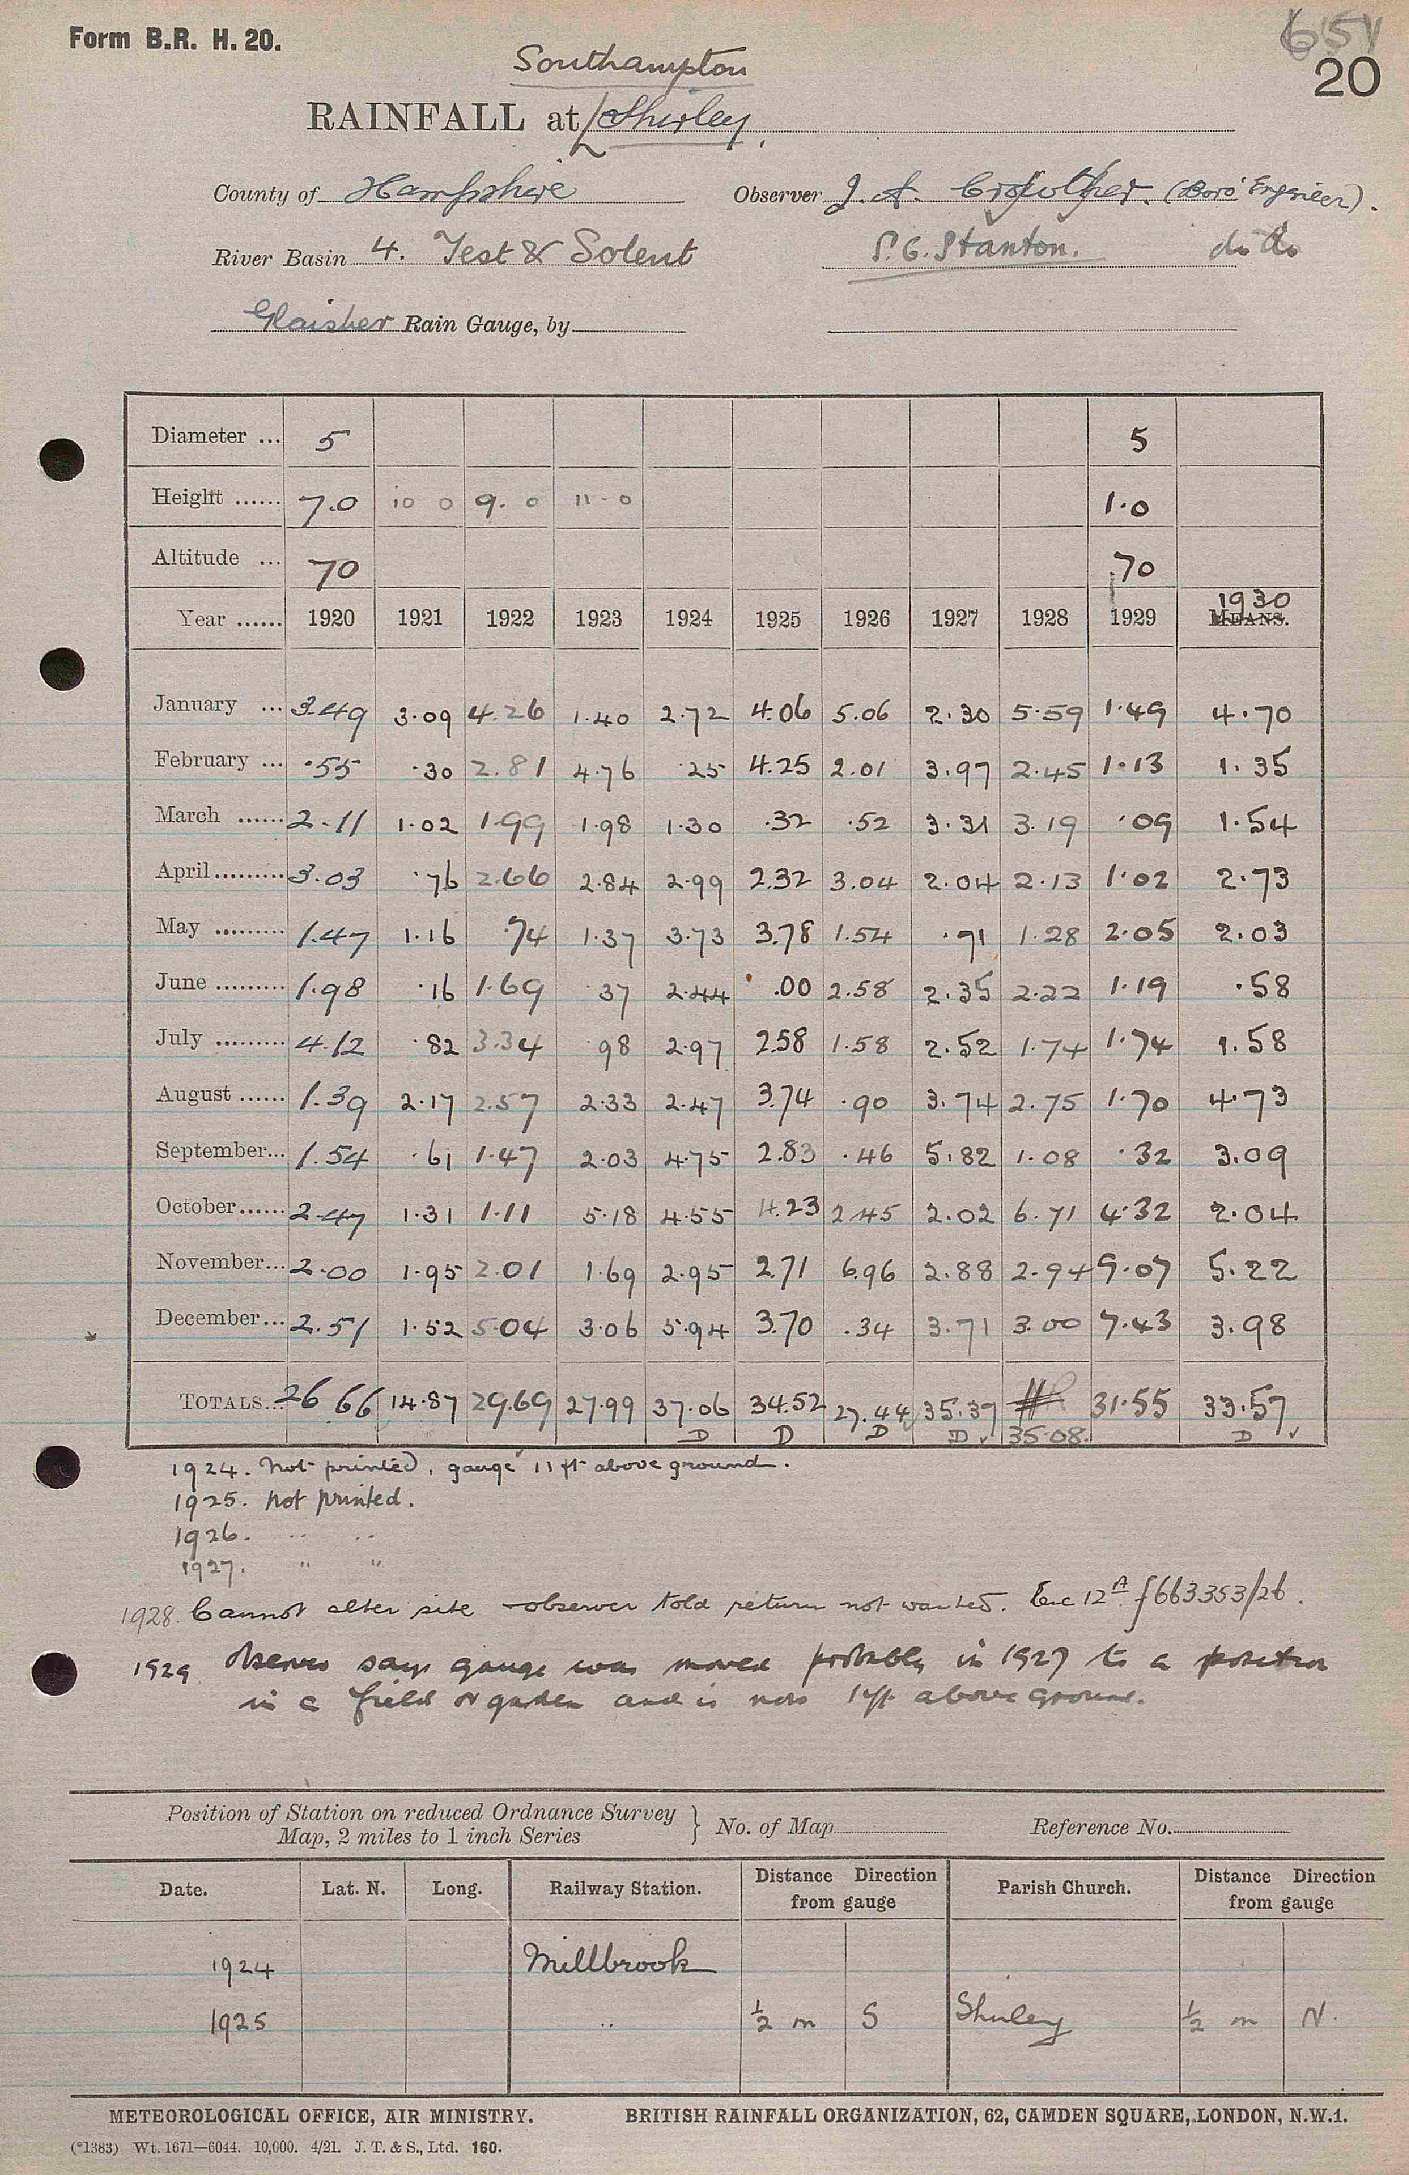 Form B.R. H. 20.
651
20
Southampton
RAINFALL at Shirley.
County of Hampshire Observer J. A. Crowther. (Boro' Engineer).
River Basin 4. Test & Solent P. G. Stanton. do do
Glaisher Rain Gauge, by
Diameter ... 5 5
Height ...... 7.0 10 0 9. 0 11 - 0 1.0
Altitude ... 70 70
Year ...... 1920 1921 1922 1923 1924 1925 1926 1927 1928 1929 MEANS. 1930
January ... 3.49 3.09 4.26 1.40 2.72 4.06 5.06 2.30 5.59 1.49 4.70
February ... .55 .30 2.81 4.76 .25 4.25 2.01 3.97 2.45 1.13 1.35
March ...... 2.11 1.02 1.99 1.98 1.30 .32 .52 3.31 3.19 .09 1.54
April ......... 3.03 .76 2.66 2.84 2.99 2.32 3.04 2.04 2.13 1.02 2.73
May ......... 1.47 1.16 .74 1.37 3.73 3.78 1.54 .71 1.28 2.05 2.03
June ......... 1.98 .16 1.69 .37 2.44 .00 2.58 2.35 2.22 1.19 .58
July ......... 4.12 .82 3.34 .98 2.97 2.58 1.58 2.52 1.74 1.74 1.58
August ...... 1.39 2.17 2.57 2.33 2.47 3.74 .90 3.74 2.75 1.70 4.73
September... 1.54 .61 1.47 2.03 4.75 2.83 .46 5.82 1.08 .32 3.09
October...... 2.47 1.31 1.11 5.18 4.55 4.23 2.45 2.02 6.71 4.32 2.04
November... 2.00 1.95 2.01 1.69 2.95 2.71 6.96 2.88 2.94 9.07 5.22
December... 2.51 1.52 5.04 3.06 5.94 3.70 .34 3.71 3.00 7.43 3.98
TOTALS... 26 66 14.87 29.69 27.99 37.06 34.52 27.44 35.37 35.08. 31.55 33.57
D D D D D
1924. Not printed, gauge 11 ft above ground.
1925. Not printed.
1926. .. ..
1927. " "
1928. Cannot alter site - observer told return not wanted. Enc 12A f663353/26.
1929 Observer says gauge was moved probably in 1927 to a position
in a field or garden and is now 1 ft above ground.
Position of Station on reduced Ordnance Survey
Map, 2 miles to 1 inch Series } No. of Map Reference No.
Date. Lat. N. Long. Railway Station. Distance Direction from gauge Parish Church. Distance Direction from gauge
1924 Millbrook
1925 .. ½ m S Shirley ½ m N.
METEOROLOGICAL OFFICE, AIR MINISTRY. BRITISH RAINFALL ORGANIZATION, 62, CAMDEN SQUARE, LONDON, N.W.1.
(*1383) Wt. 1671—6044. 10,000. 4/21. J. T. & S., Ltd. 160.